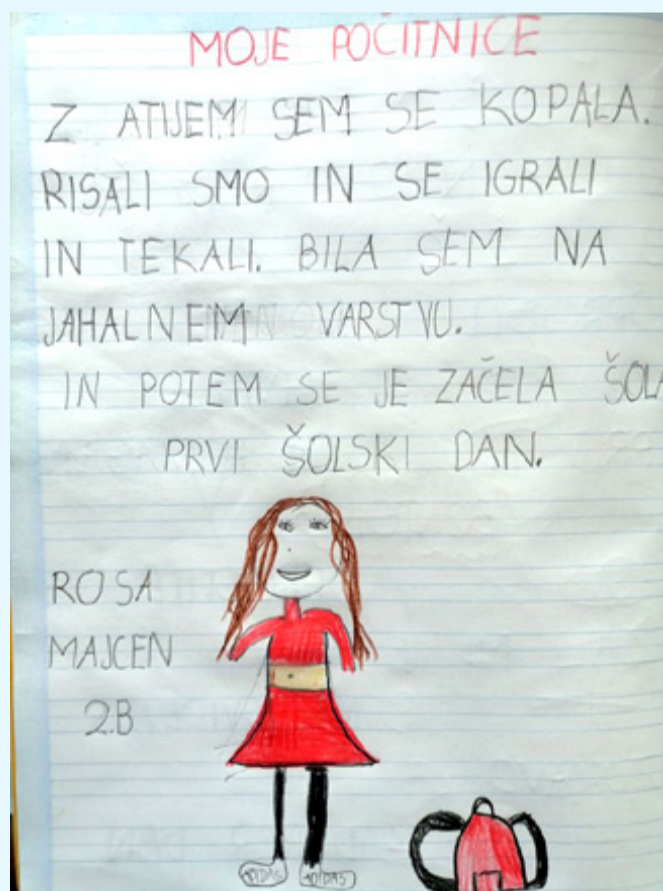 MOJE POČITNICE
Z ATIJEM SEM SE KOPALA.
RISALI SMO IN SE IGRALI
IN TEKALI. BILA SEM NA
JAHALNEM VARSTVU.
IN POTEM SE JE ZAČELA ŠOLA
PRVI ŠOLSKI DAN.
ROSA
MAJCEN
2.B
ADIDAS ADIDAS